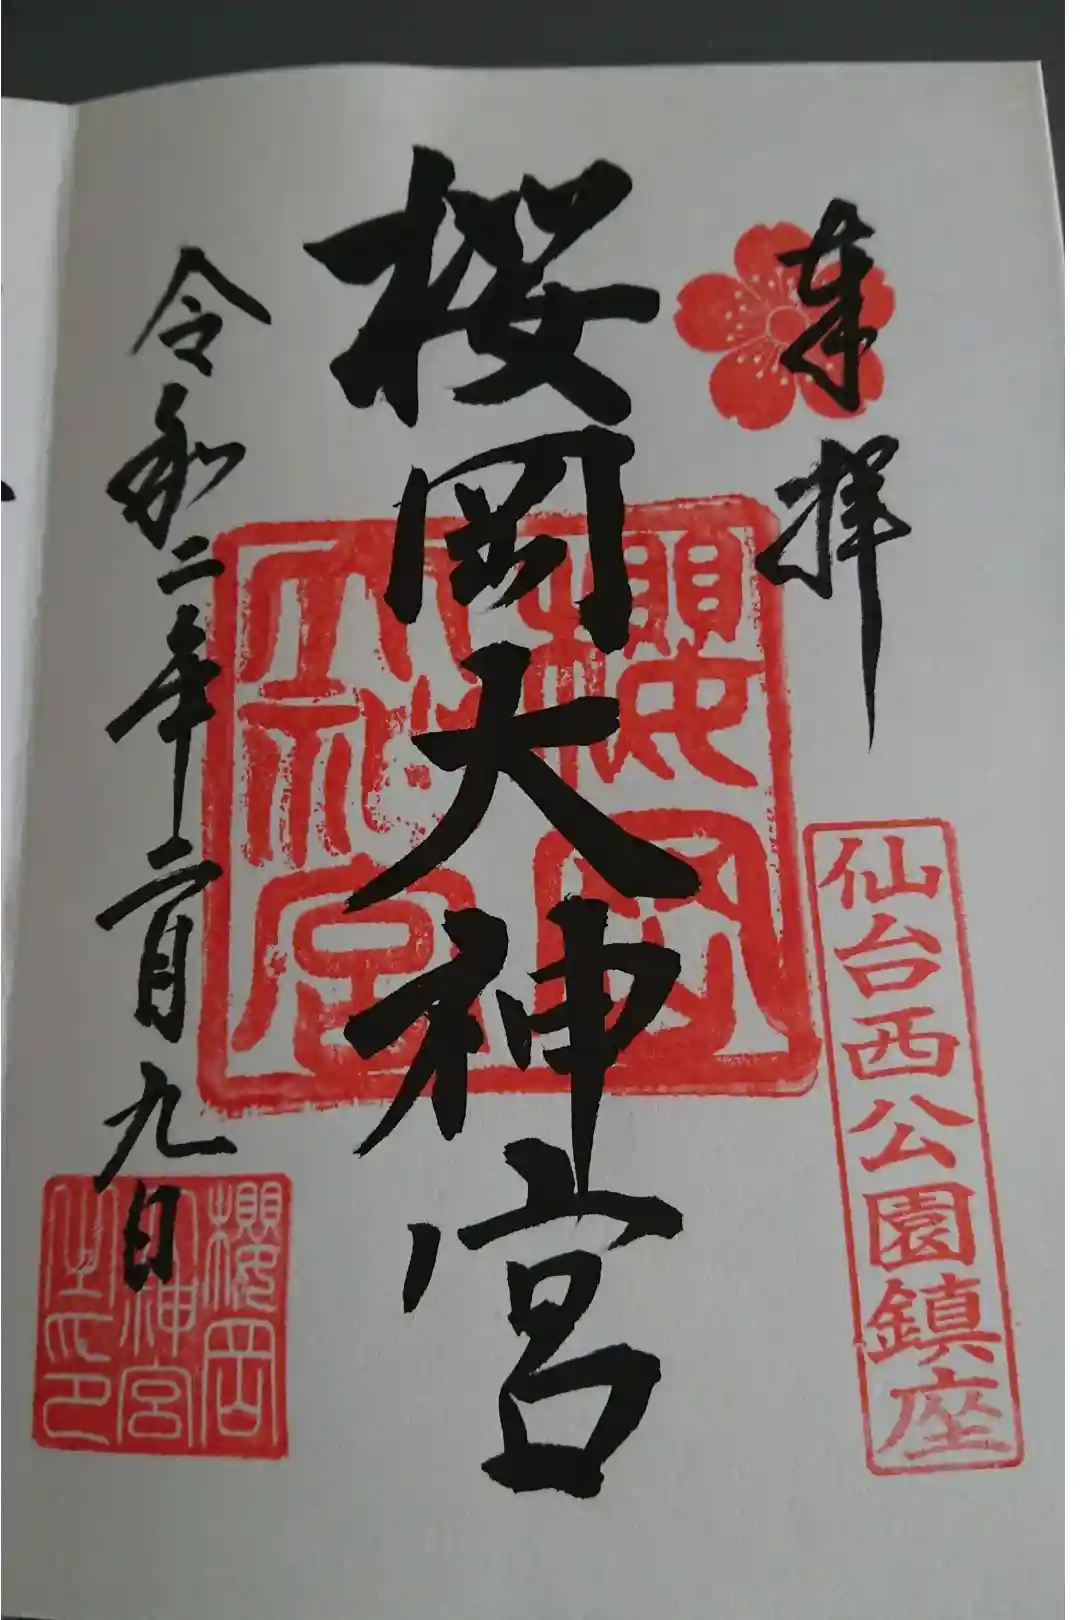 奉拝
仙台西公園鎮座
桜岡大神宮
櫻岡
大神宮
令和二年二月九日
櫻岡
大神宮
之印